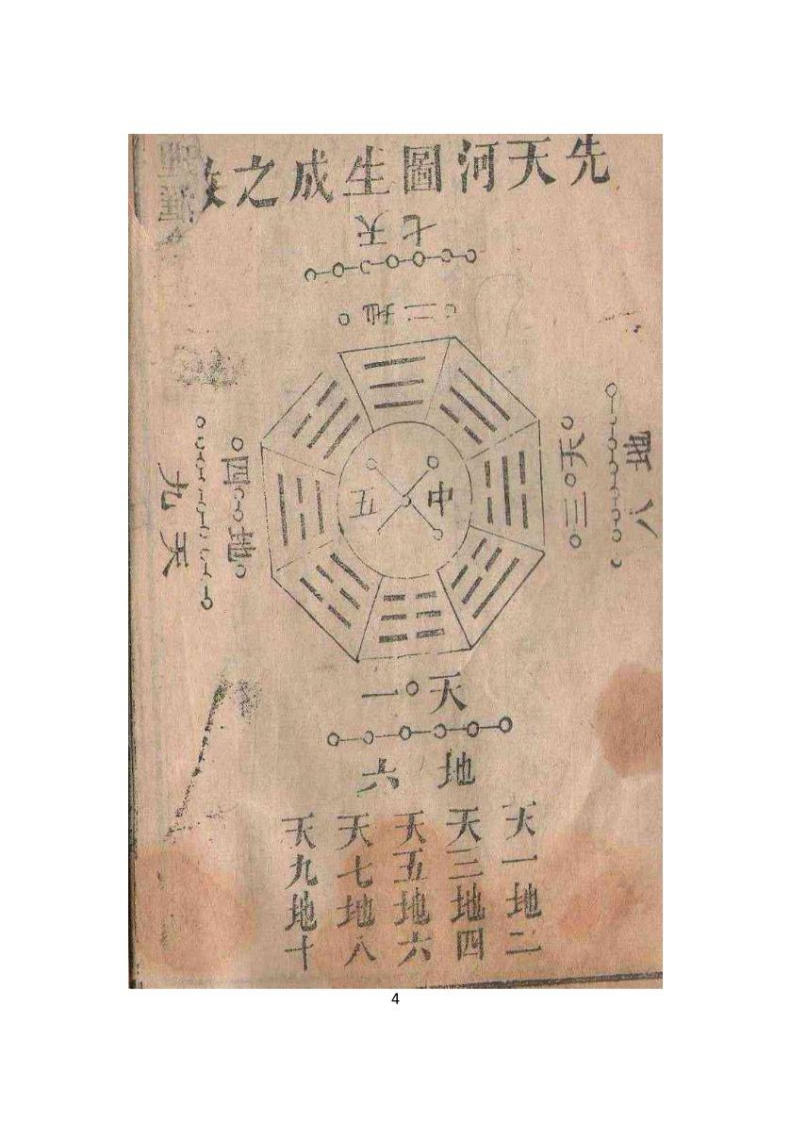 先天河圖生成之數
天七
地二
天三
地八
地四
天九
中五
天一
地六
天一地二
天三地四
天五地六
天七地八
天九地十
4